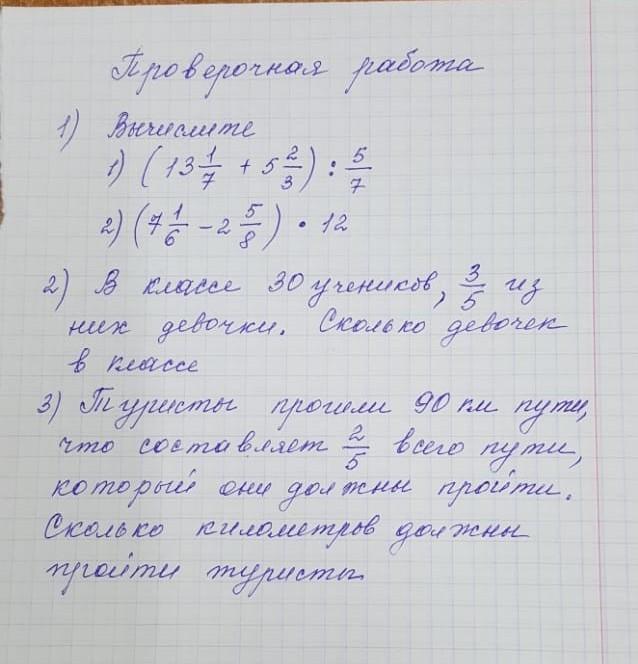 Проверочная работа
1) Вычислите
1) (13 1/7 + 5 2/3) : 5/7
2) (7 1/6 - 2 5/8) • 12
2) В классе 30 учеников, 3/5 из
них девочки. Сколько девочек
в классе
3) Туристы прошли 90 км пути,
что составляет 2/5 всего пути,
который они должны пройти.
Сколько километров должны
пройти туристы